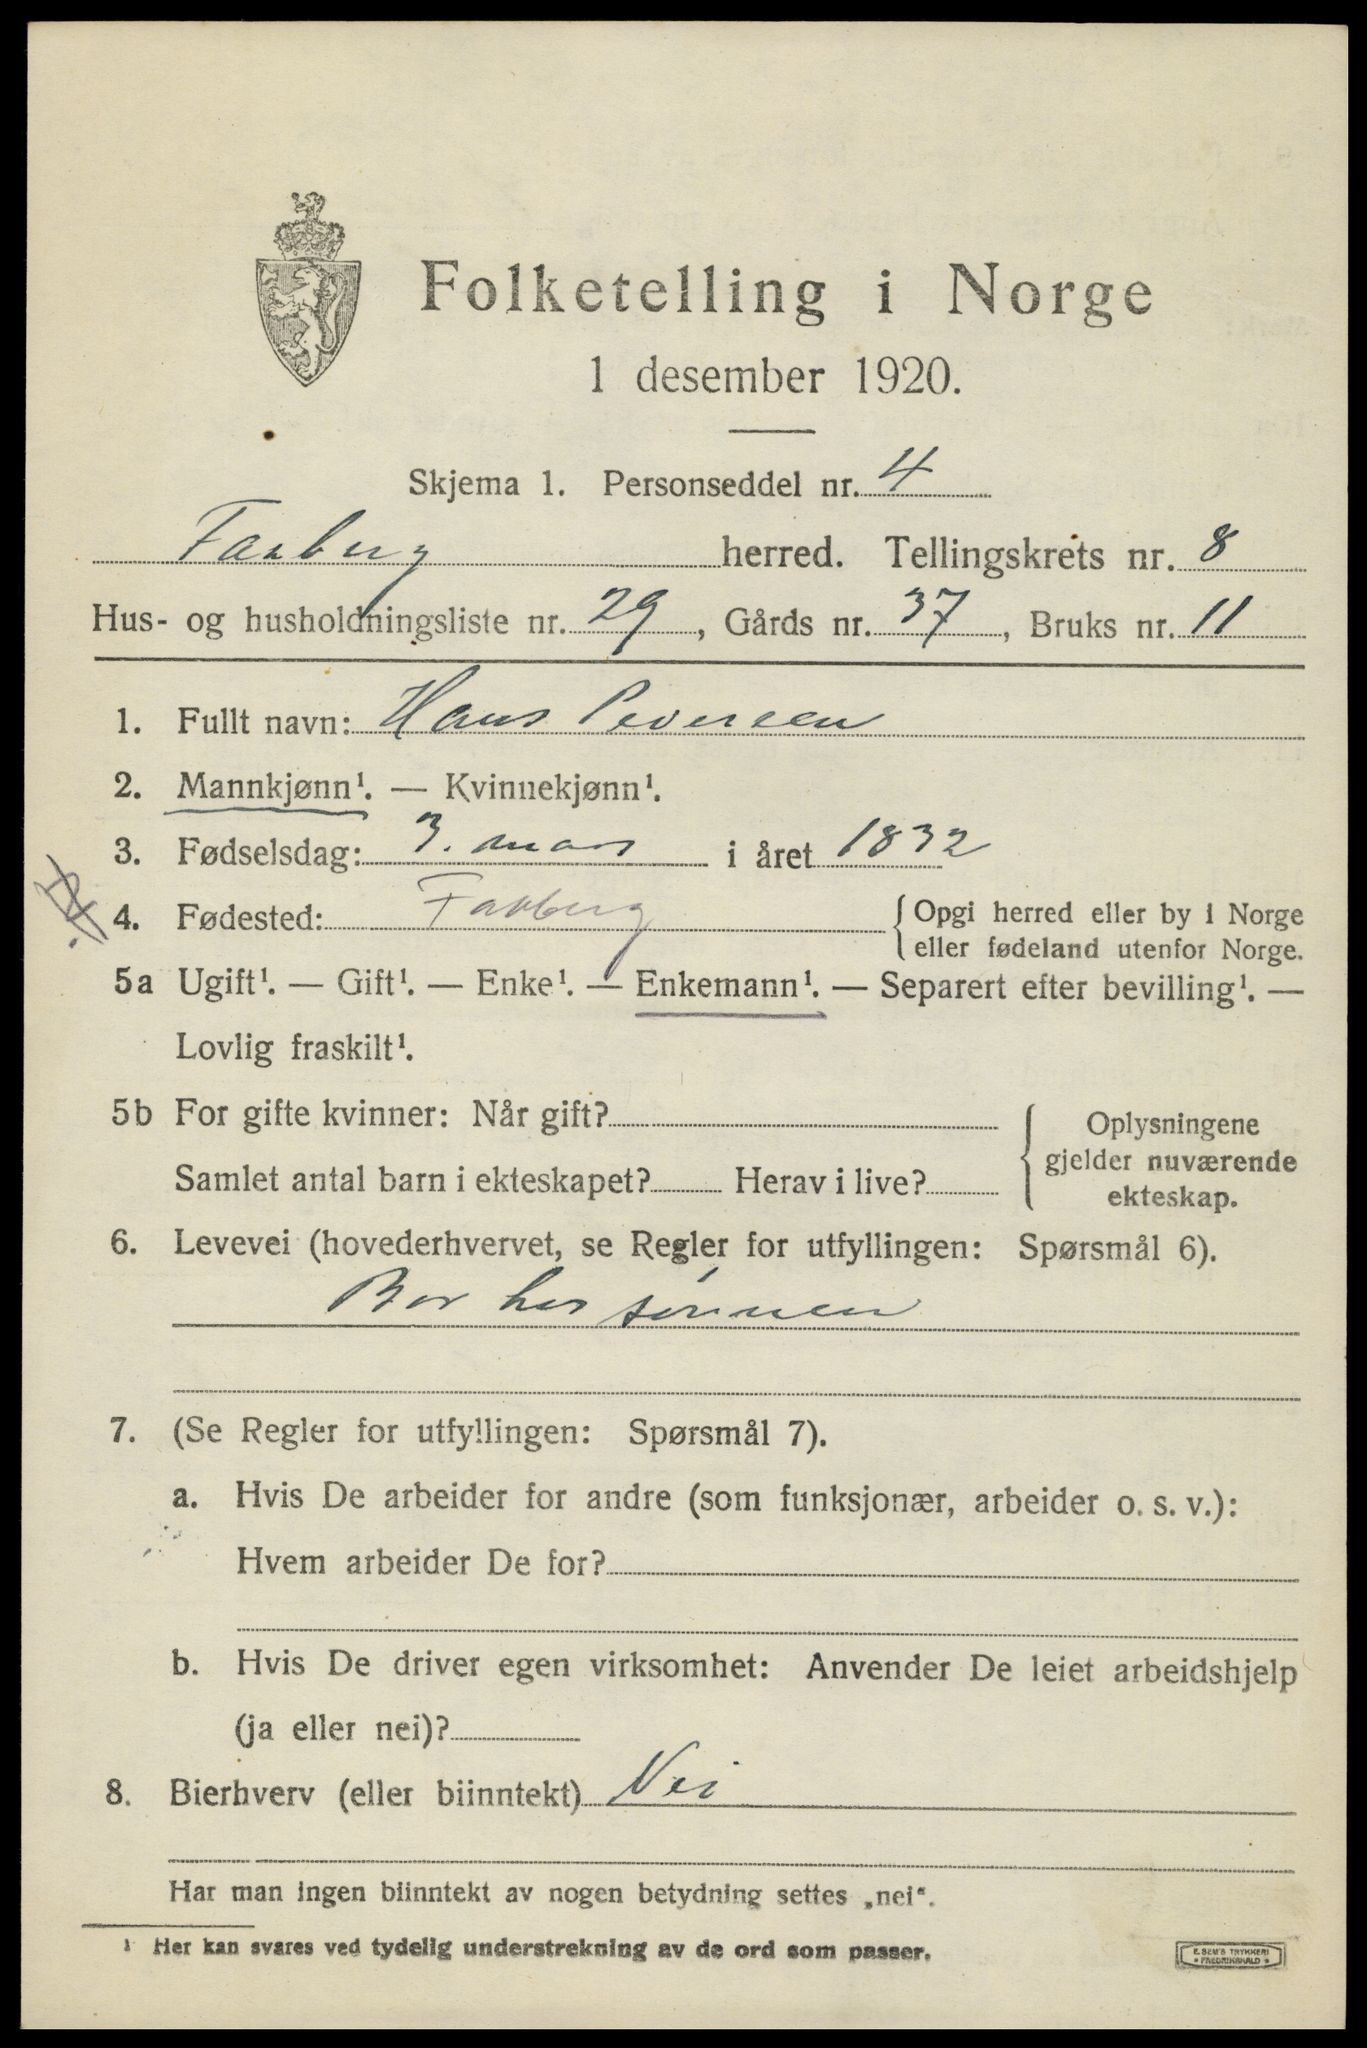 Folketelling i Norge
1 desember 1920.
Skjema 1. Personseddel nr. 4
Faaberg herred. Tellingskrets nr. 8
Hus- og husholdningsliste nr. 29, Gårds nr. 37, Bruks nr. 11
1. Fullt navn: Hans
2. Mannkjønn¹. — Kvinnekjønn¹.
3. Fødselsdag: 3. mars i året 1832
4. Fødested: Faaberg { Opgi herred eller by i Norge
eller fødeland utenfor Norge.
5a Ugift¹. — Gift¹. — Enke¹. — Enkemann¹. — Separert efter bevilling¹. —
Lovlig fraskilt¹.
5b For gifte kvinner: Når gift? { Oplysningene
gjelder nuværende
Samlet antal barn i ekteskapet? Herav i live?
ekteskap.
6. Levevei (hovederhvervet, se Regler for utfyllingen: Spørsmål 6).
Bor hos sønnen
7. (Se Regler for utfyllingen: Spørsmål 7).
a. Hvis De arbeider for andre (som funksjonær, arbeider o. s. v.):
Hvem arbeider De for?
b. Hvis De driver egen virksomhet: Anvender De leiet arbeidshjelp
(ja eller nei)?
8. Bierhverv (eller biinntekt) Nei
Har man ingen biinntekt av nogen betydning settes „nei“.
¹ Her kan svares ved tydelig understrekning av de ord som passer.
E. SEM'S TRYKKERI
* FREDRIKSHALD *